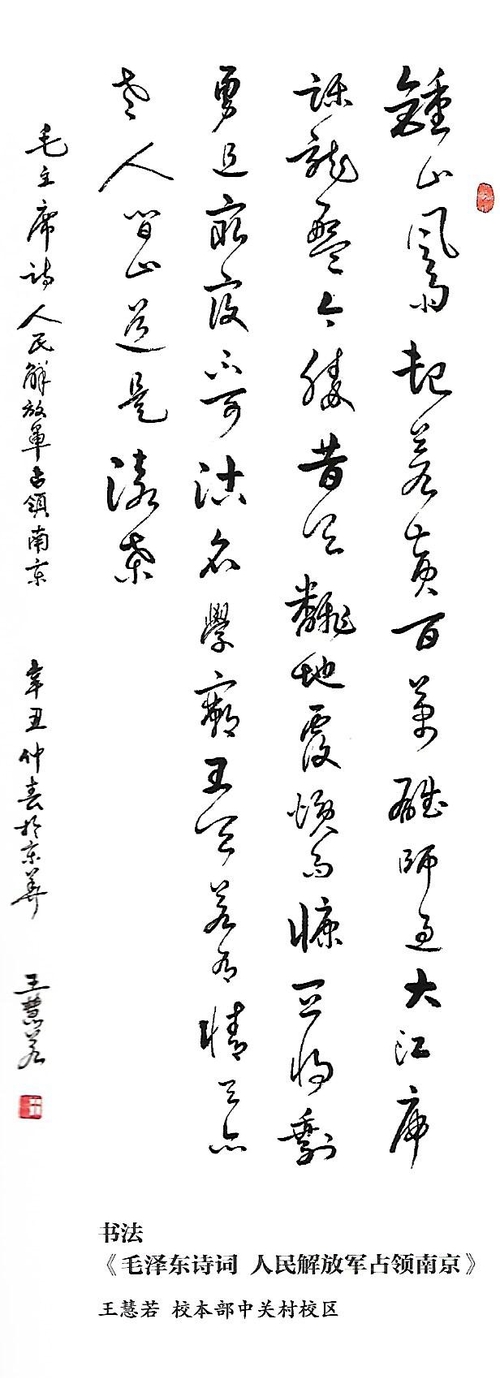 鍾山風雨起蒼黃百萬雄師過大江虎
踞龍盤今勝昔天翻地覆慨而慷宜將剩
勇追窮寇不可沽名學霸王天若有情天亦
老人間正道是滄桑
毛主席詩人民解放軍占領南京 辛丑仲春於京華 王慧若
书法
《毛泽东诗词 人民解放军占领南京》
王慧若 校本部中关村校区